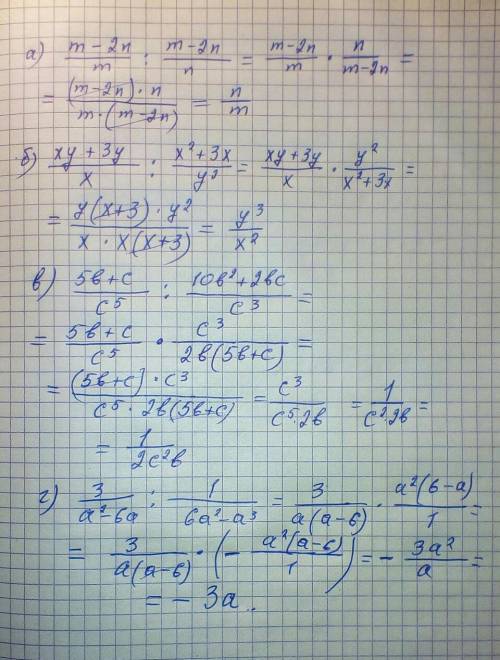 а) (m-2n)/m : (m-2n)/n = (m-2n)/m · n/(m-2n) =
= ((m-2n)·n)/(m·(m-2n)) = n/m
б) (xy+3y)/x : (x²+3x)/y² = (xy+3y)/x · y²/(x²+3x) =
= (y(x+3)·y²)/(x·x(x+3)) = y³/x²
в) (5в+c)/c⁵ : (10в²+2вc)/c³ =
= (5в+c)/c⁵ · c³/(2в(5в+c)) =
= ((5в+c)·c³)/(c⁵·2в(5в+c)) = c³/(c⁵·2в) = 1/(c²·2в) =
= 1/(2c²в)
г) 3/(a²-6a) : 1/(6a²-a³) = 3/(a(a-6)) · (a²(6-a))/1 =
= 3/(a(a-6)) · (- (a²(a-6))/1) = - 3a²/a =
= - 3a.